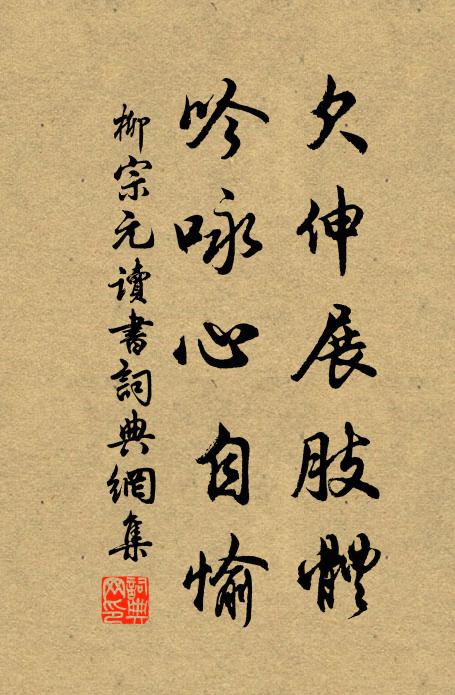 欠伸展肢體
吟咏心自愉
柳宗元讀書詞典網集
詞典網印